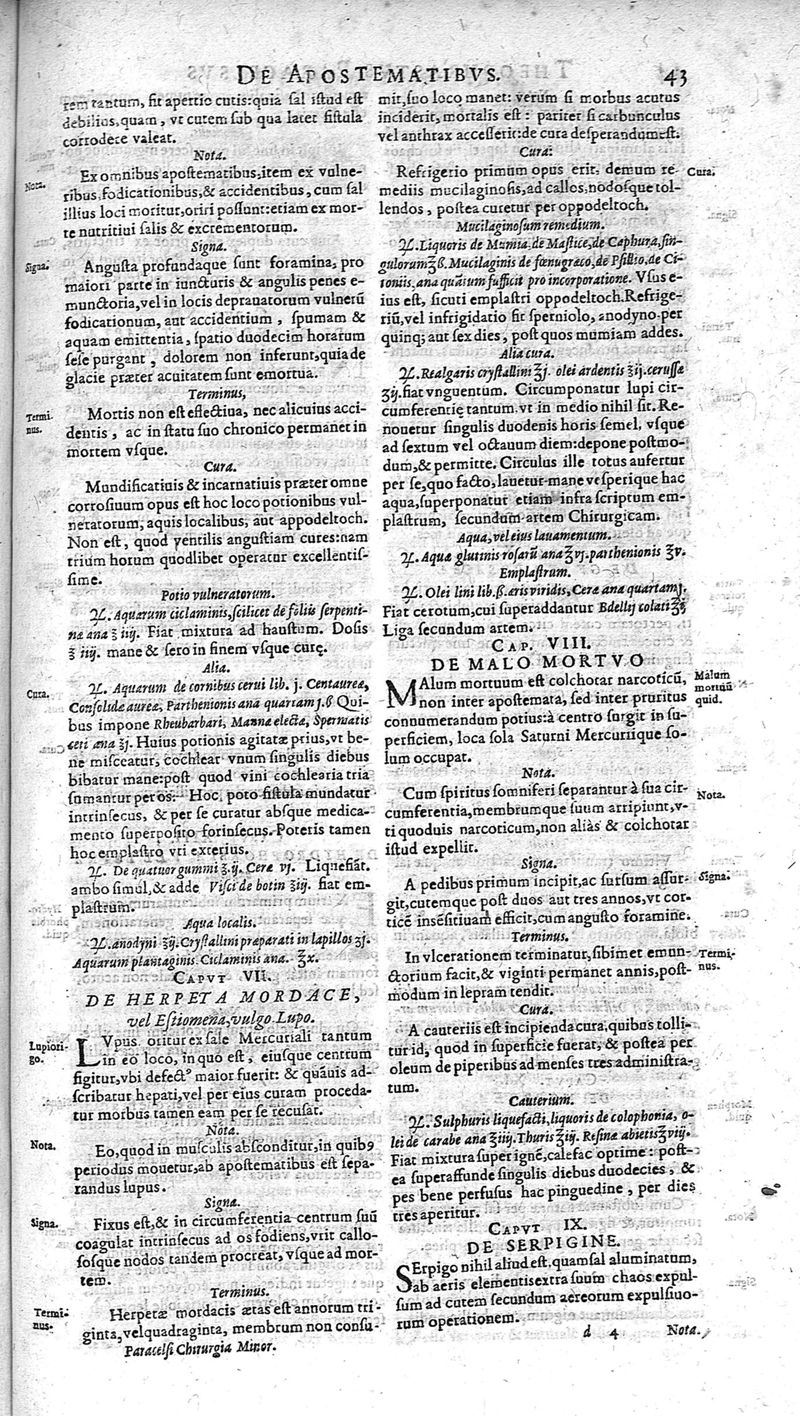 DE APOSTEMATIBVS. 43
rem tantum, fit apertio cutis: quia sal istud est
debilius, quam, vt cutem sub qua latet fistula
corrodere valeat.
Nota.
Nota.
Ex omnibus apostematibus, item ex vulne-
ribus, fodicationibus, & accidentibus, cum sal
illius loci moritur, oriri possunt: etiam ex mor-
te nutritiui salis & excrementorum.
Signa.
Signa.
Angusta profundaque sunt foramina, pro
maiori parte in iuncturis & angulis penes e-
munctoria, vel in locis deprauatorum vulnerū
fodicationum, aut accidentium, spumam &
aquam emittentia, spatio duodecim horarum
sese purgant, dolorem non inferunt, quia de
glacie præter acuitatem sunt emortua.
Terminus,
Termi.
nus.
Mortis non est effectiua, nec alicuius acci-
dentis, ac in statu suo chronico permanet in
mortem vsque.
Cura.
Mundificatiuis & incarnatiuis præter omne
corrosiuum opus est hoc loco potionibus vul-
neratorum, aquis localibus, aut appodeltoch.
Non est, quod ventilis angustiam cures: nam
trium horum quodlibet operatur excellentis-
sime.
Potio vulneratorum.
℞. Aquarum ciclaminis, scilicet de foliis serpenti-
næ ana ℥ iiij. Fiat mixtura ad haustum. Dosis
℥ iiij. mane & sero in finem vsque curę.
Alia.
Cura.
℞. Aquarum de cornibus cerui lib. j. Centaureæ,
Consolidæ aureæ, Parthenionis ana quartam j. ß Qui-
bus impone Rheubarbari, Mannæ electæ, Spermatis
ceti ana ℥j. Huius potionis agitatæ prius, vt be-
ne misceatur, cochlear vnum singulis diebus
bibatur mane: post quod vini cochlearia tria
sumantur per os: Hoc poto fistula mundatur
intrinsecus, & per se curatur absque medica-
mento superposito forinsecus. Poteris tamen
hoc emplastro vti exterius.
℞. De quatuor gummi ℥.ij. Ceræ vj. Liquefiāt.
ambo simul, & adde Visci de botin ℥iij. fiat em-
plastrum.
Aqua localis.
℞. anodyni ℥ij. Crystallini præparati in lapillos ʒj.
Aquarum plantaginis. Ciclaminis ana. ℥x.
CAPVT VII.
DE HERPETA MORDACE,
vel Estiomena, vulgo Lupo.
Lupi ori-
go.
LVpus oritur ex sale Mercuriali tantum
in eo loco, in quo est, eiusque centrum
figitur, vbi defectꝰ maior fuerit: & quāuis ad-
scribatur hepati, vel per eius curam proceda-
tur morbus tamen eam per se recusat.
Nota.
Nota.
Eo, quod in musculis absconditur, in quibꝰ
periodus mouetur, ab apostematibus est sepa-
randus lupus.
Signa.
Signa.
Fixus est, & in circumferentia centrum suū
coagulat intrinsecus ad os fodiens, vrit callo-
sosque nodos tandem procreat, vsque ad mor-
tem.
Terminus.
Termi-
nus.
Herpetæ mordacis ætas est annorum tri-
ginta, vel quadraginta, membrum non consu-
Paracelsi Chirurgia Minor.
mit, suo loco manet: verum si morbus acutus
inciderit, mortalis est: pariter si carbunculus
vel anthrax accesserit: de cura desperandum est.
Cura:
Cura.
Refrigerio primum opus erit, demum re-
mediis mucilaginosis, ad callos, nodosque tol-
lendos, postea curetur per oppodeltoch.
Mucilaginosum remedium.
℞. Liquoris de Mumia, de Mastice, de Caphura, sin-
gulorum ℥ß. Mucilaginis de fœnugræco, de Psillio, de Ci-
toniis, ana quātum sufficit pro incorporatione. Vsus e-
ius est, sicuti emplastri oppodeltoch. Refrige-
riū, vel infrigidatio fit sperniolo, anodyno per
quinq; aut sex dies, post quos mumiam addes.
Alia cura.
℞. Realgaris crystallini ℥j. olei ardentis ℥ij. cerussæ
℥ij. fiat vnguentum. Circumponatur lupi cir-
cumferentię tantum, vt in medio nihil sit. Re-
nouetur singulis duodenis horis semel, vsque
ad sextum vel octauum diem: depone postmo-
dum, & permitte. Circulus ille totus aufertur
per se, quo facto, lauetur mane vesperique hac
aqua, superponatur etiam infra scriptum em-
plastrum, secundum artem Chirurgicam.
Aqua, vel eius lauamentum.
℞. Aquæ glutinis rosarū ana ℥vj. parthenionis ℥v.
Emplastrum.
℞. Olei lini lib. ß. æris viridis, Ceræ ana quartam j.
Fiat cerotum, cui superaddantur Bdellij colati ℥j
Liga secundum artem.
CAP. VIII.
DE MALO MORTVO
Malum
mortuū
quid.
MAlum mortuum est colchotar narcoticū,
non inter apostemata, sed inter pruritus
connumerandum potius: à centro surgit in su-
perficiem, loca sola Saturni Mercuriique so-
lum occupat.
Nota.
Nota.
Cum spiritus somniferi separantur à sua cir-
cumferentia, membrumque suum arripiunt, v-
ti quoduis narcoticum, non aliàs & colchotar
istud expellit.
Signa.
Signa.
A pedibus primum incipit, ac sursum assur-
git, cutemque post duos aut tres annos, vt cor-
ticē insēsitiuam efficit, cum angusto foramine.
Terminus.
Termi-
nus.
In vlcerationem terminatur, sibimet emun-
ctorium facit, & viginti permanet annis, post-
modum in lepram tendit.
Cura.
A cauteriis est incipienda cura, quibus tolli-
tur id, quod in superficie fuerat, & postea per
oleum de piperibus ad menses tres administra-
tum.
Cauterium.
℞. Sulphuris liquefacti, liquoris de colophonia, o-
lei de carabe ana ℥iiij. Thuris ℥ij. Resinæ abietis ℥viij.
Fiat mixtura super ignē, calefac optime: post-
ea superaffunde singulis diebus duodecies, &
pes bene perfusus hac pinguedine, per dies
tres aperitur.
CAPVT IX.
DE SERPIGINE.
SErpigo nihil aliud est, quam sal aluminatum,
ab aeris elementis extra suum chaos expul-
sum ad cutem secundum aereorum expulsiuo-
rum operationem.
d 4 Nota.